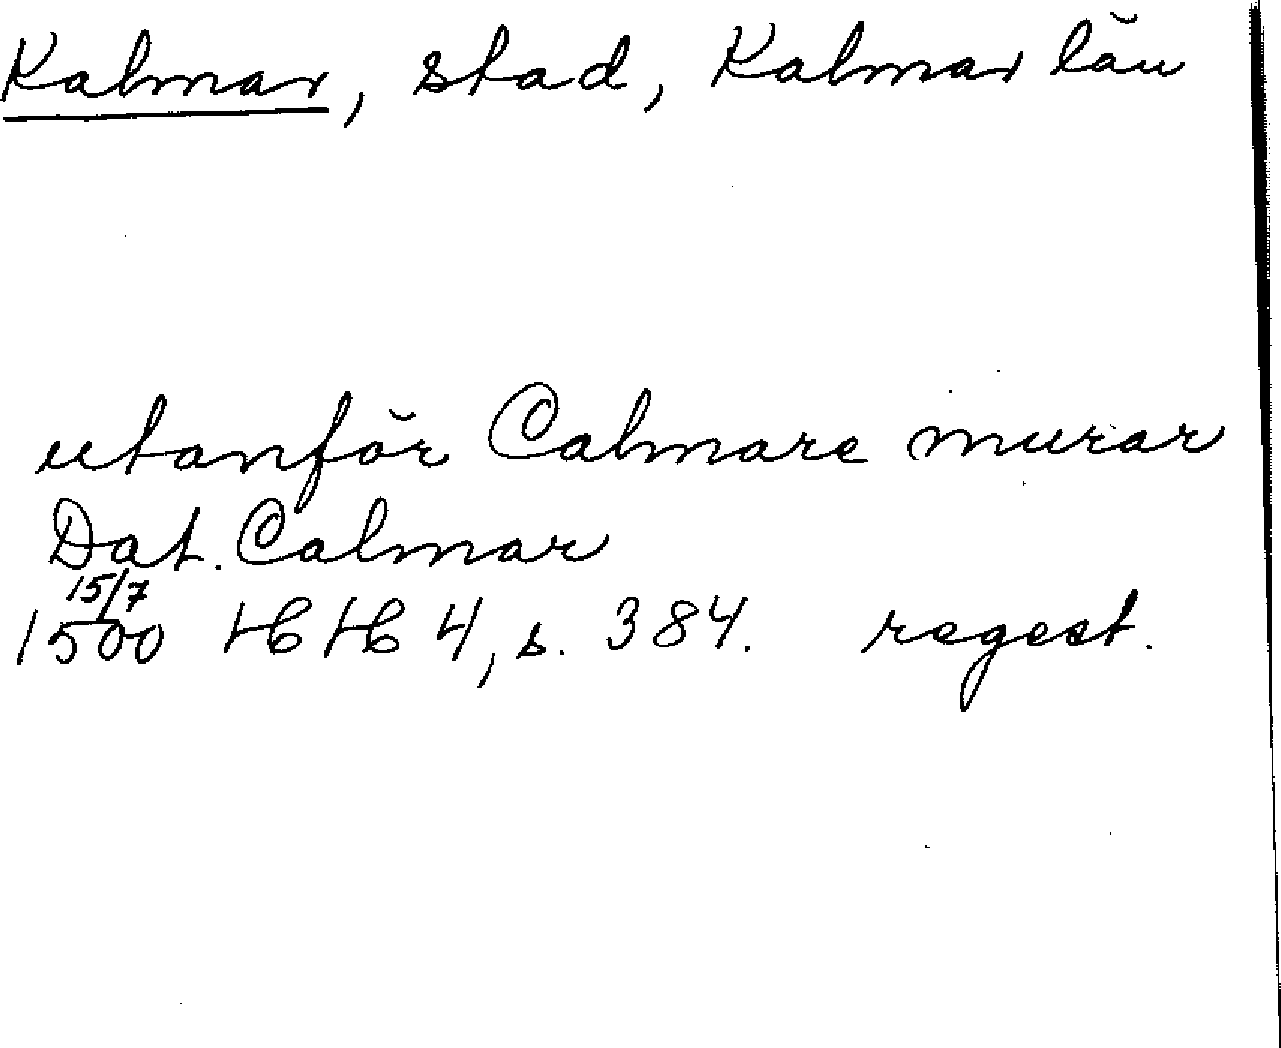 Kalmar, stad, Kalmar län
utanför Calmare murar
Dat. Calmar
15/7
1500 HH 4, s. 384. regest.